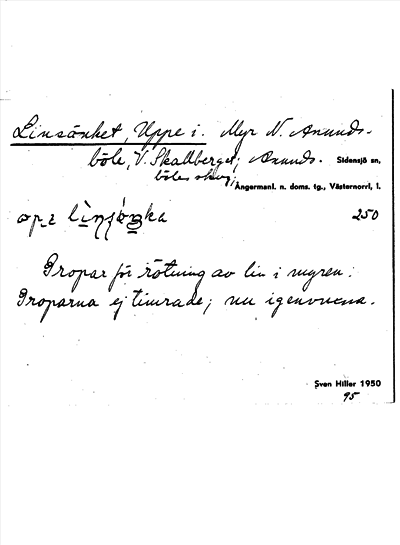 Linsänket, Uppe i. Myr N. Anunds-
böle, V. Skallberget, Anunds- Sidensjö sn,
böles skog; Ångermanl. n. doms. tg., Västernorrl. l.
250
Gropar för rötning av lin i myren.
Groparna ej timrade; nu igenvuxna.
Sven Hiller 1950
95